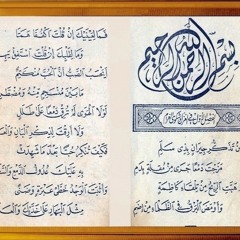 بسم الله الرحمن الرحيم
أمن تذكر جيران بذي سلم
مزجت دمعا جرى من مقلة بدم
أم هبت الريح من تلقاء كاظمة
وأومض البرق في الظلماء من إضم
فما لعينيك إن قلت اكففا همتا
وما لقلبك إن قلت استفق يهم
أيحسب الصب أن الحب منكتم
ما بين منسجم منه ومضطرم
لولا الهوى لم ترق دمعا على طلل
ولا أرقت لذكر البان والعلم
فكيف تنكر حبا بعد ما شهدت
به عليك عدول الدمع والسقم
وأثبت الوجد خطي عبرة وضنى
مثل البهار على خديك والعنم